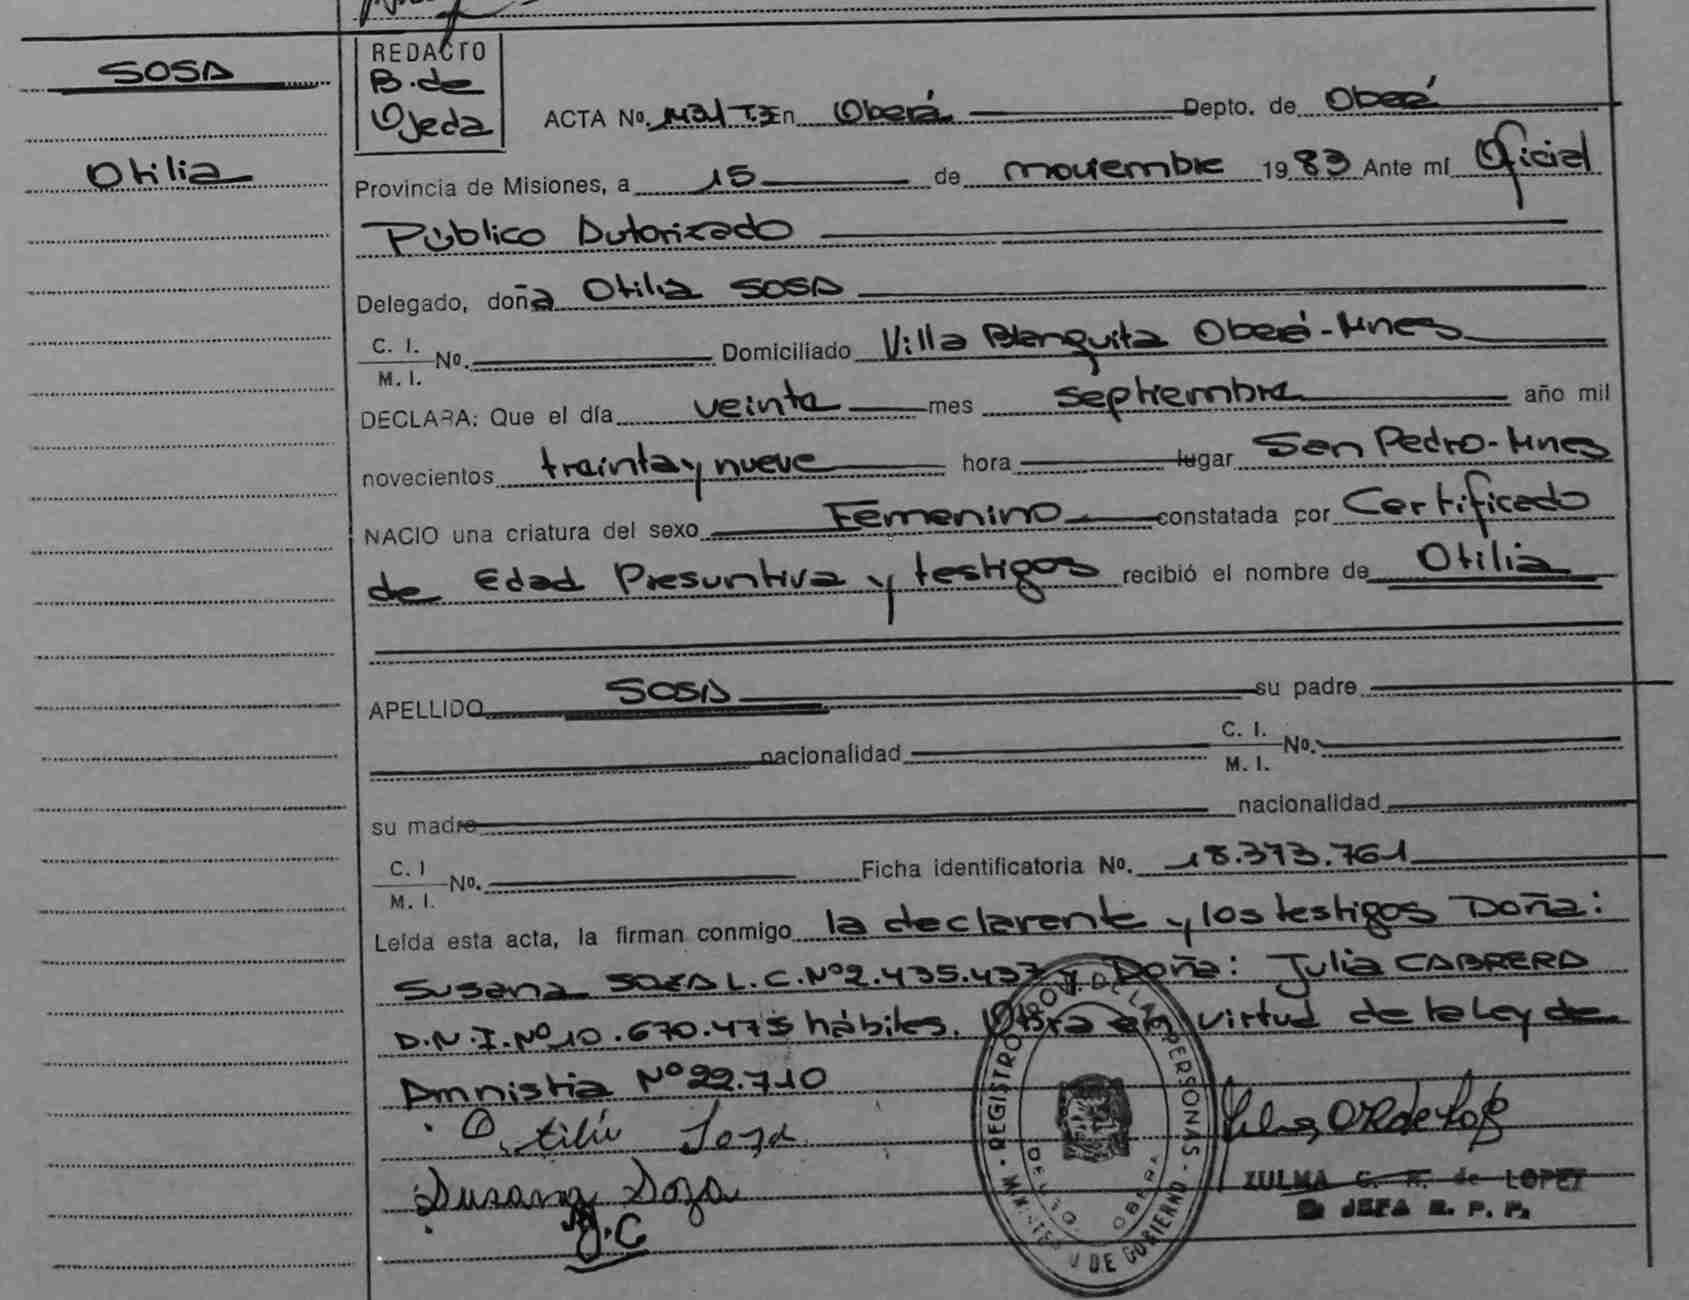 SOSA
Otilia
REDACTO
B. de
Ojeda
ACTA No. 1431 T.I En Oberá Depto. de Oberá
Provincia de Misiones, a 15 de noviembre 1983 Ante mí Oficial
Público Autorizado
Delegado, doña Otilia SOSA
C. I.
M. I. No. Domiciliado Villa Blanquita Oberá-Mnes
DECLARA: Que el día veinte mes septiembre año mil
novecientos treinta y nueve hora lugar San Pedro-Mnes
NACIO una criatura del sexo Femenino constatada por Certificado
de Edad Presuntiva y testigos recibió el nombre de Otilia
APELLIDO SOSA su padre
nacionalidad C. I.
M. I. No.
su madre nacionalidad
C. I
M. I. No. Ficha identificatoria No. 18.373.761
Leída esta acta, la firman conmigo la declarante y los testigos Doña:
Susana SOSA L.C.Nº2.435.437 y Doña: Julia CABRERA
D.N.I.Nº10.670.475 hábiles. en virtud de la Ley de
Amnistia Nº22.710
Otilia Sosa
Susana Soza
J.C
REGISTRO PROV. DE LAS PERSONAS - MINISTERIO DE GOBIERNO
DEPTO. OBERA
ZULMA C. R. de LOPEZ
JEFA R. P. P.